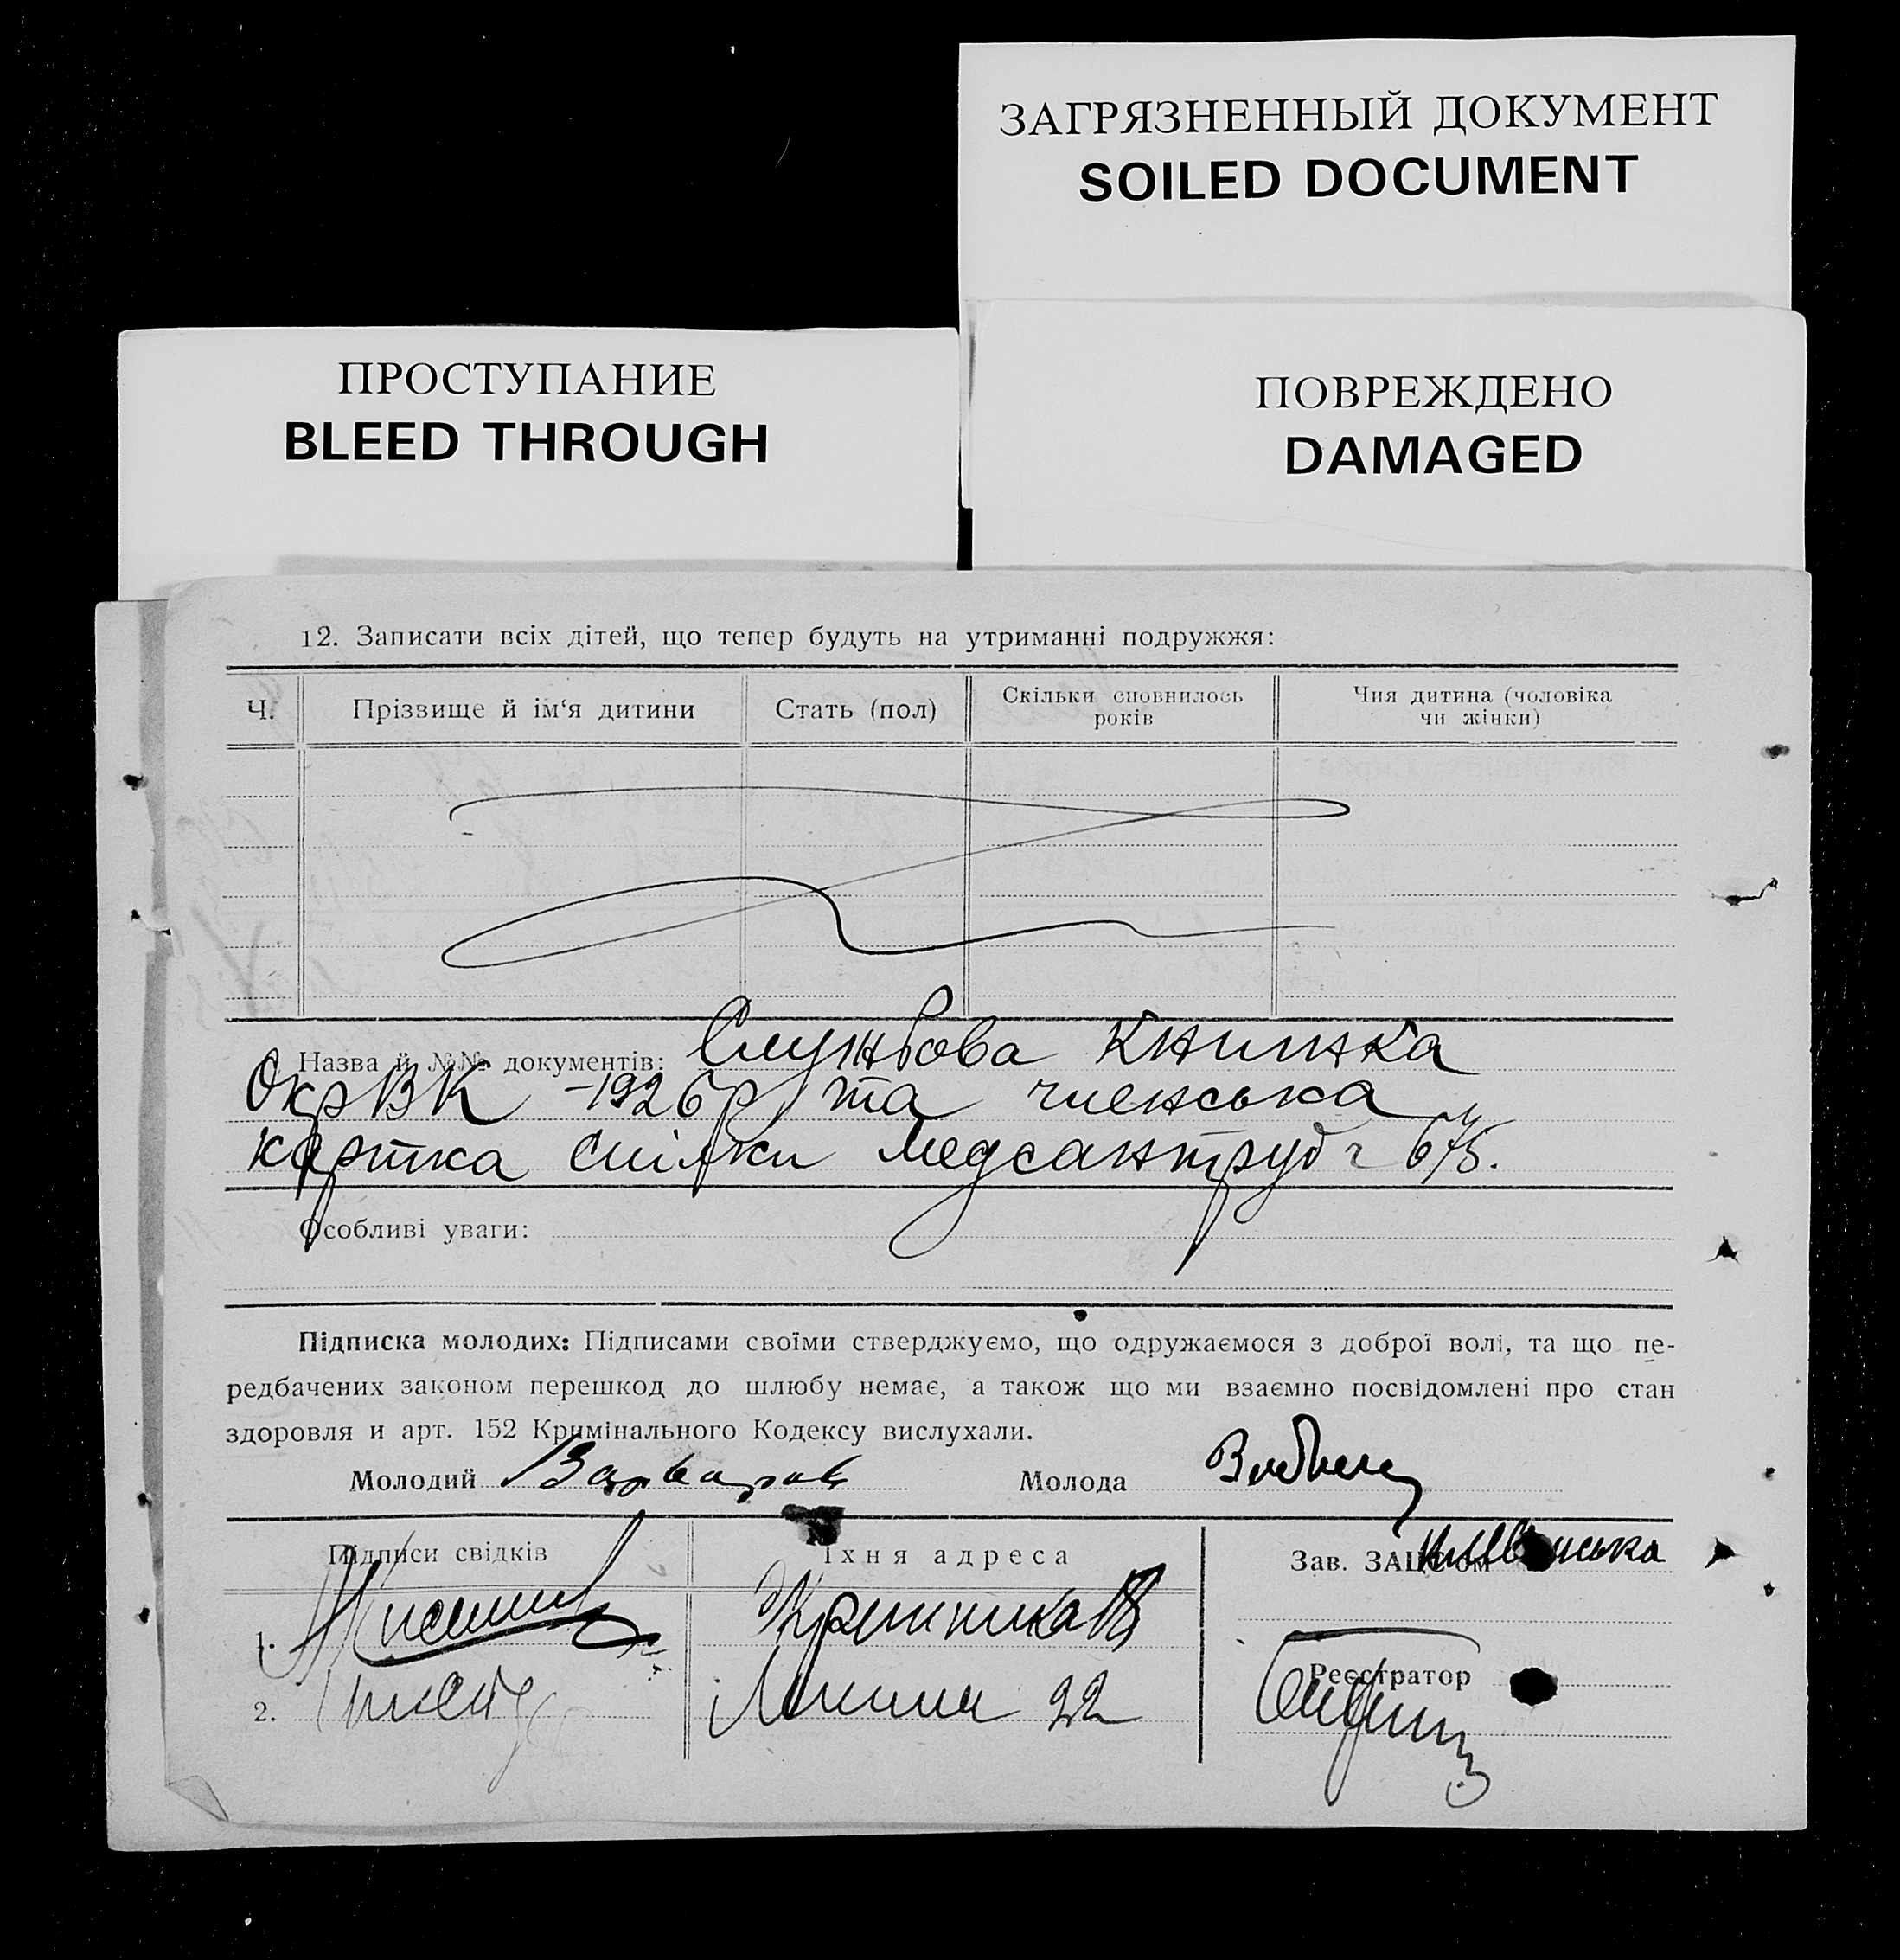 ЗАГРЯЗНЕННЫЙ ДОКУМЕНТ
SOILED DOCUMENT
ПРОСТУПАНИЕ
BLEED THROUGH
ПОВРЕЖДЕНО
DAMAGED
12. Записати всіх дітей, що тепер будуть на утриманні подружжя:
Ч. Прізвище й ім‘я дитини Стать (пол) Скільки сповнилось років Чия дитина (чоловіка чи жінки)
Назва й №№ документів: Службова книжка
ОкрВК -1926р. та членська
картка спілки Медсантруд ч 675.
Особливі уваги:
Підписка молодих: Підписами своїми стверджуємо, що одружаємося з доброї волі, та що пе-
редбачених законом перешкод до шлюбу немає, а також що ми взаємно посвідомлені про стан
здоровля и арт. 152 Кримінального Кодексу вислухали.
Молодий Молода
Підписи свідків Їхня адреса Зав. ЗАЦС‘ом
1.
Реєстратор
2. 22